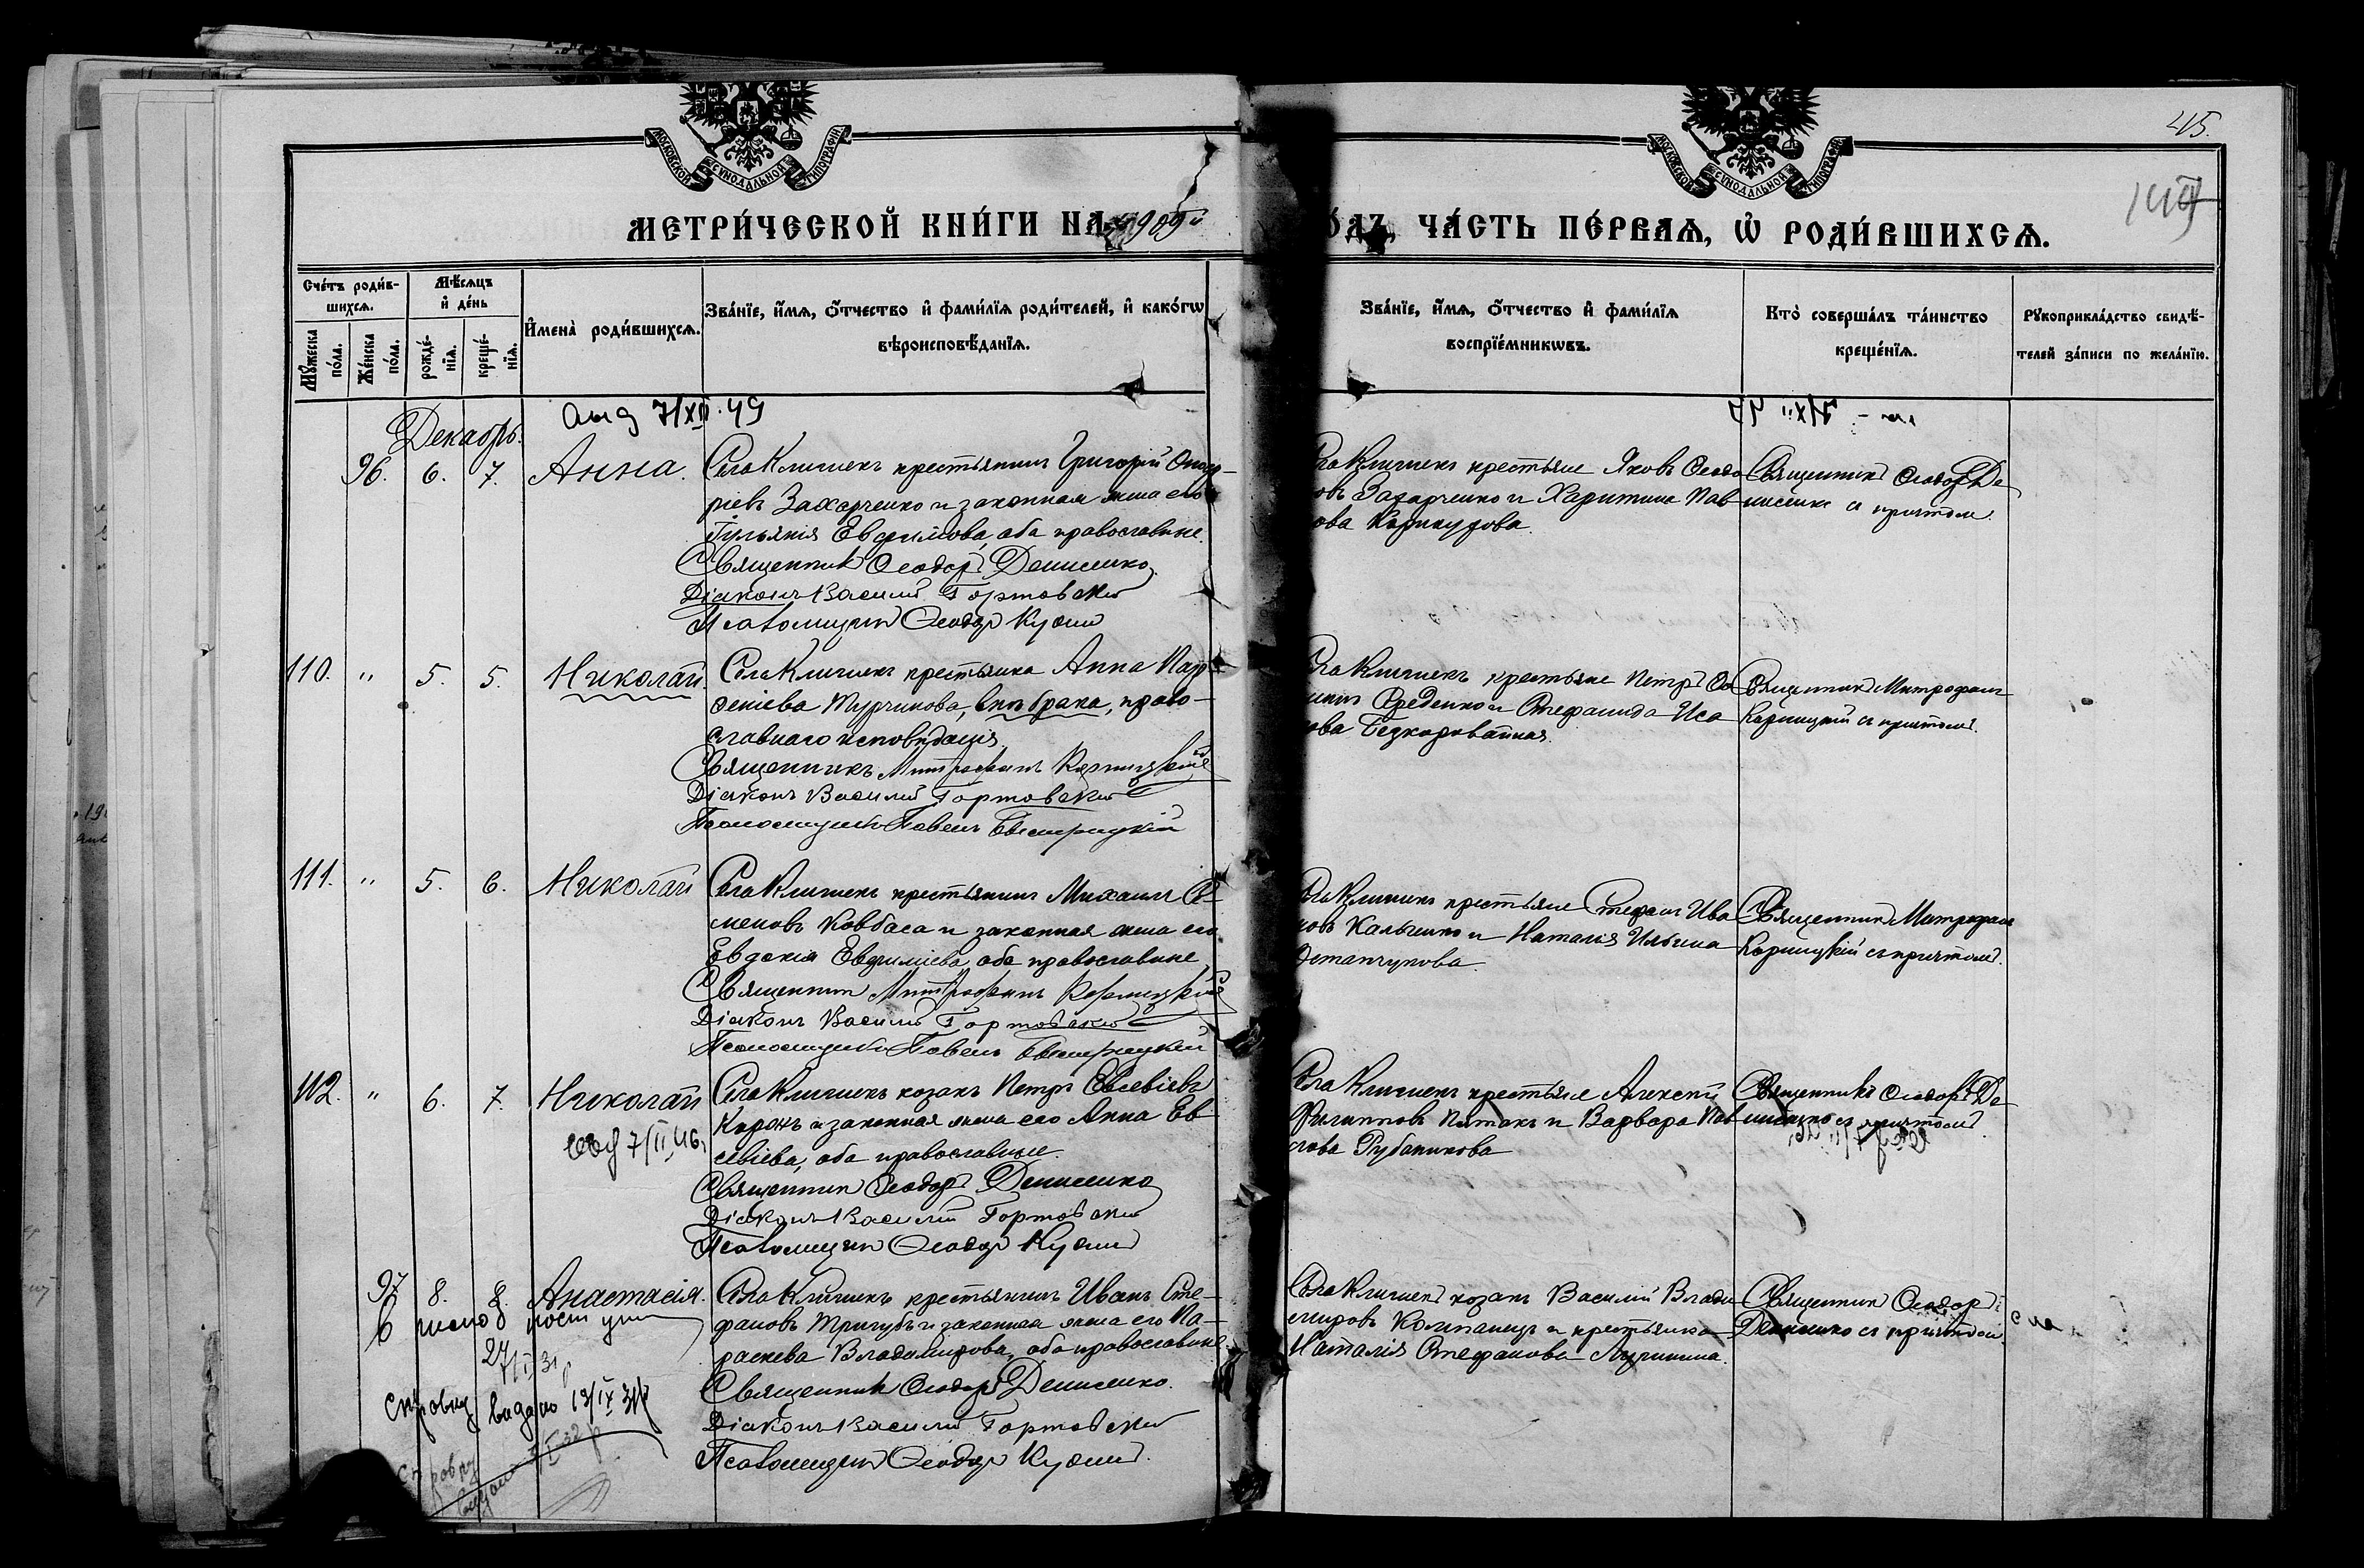 МОСКОВСКОЙ СѴНОДАЛЬНОЙ ТИПОГРАФІИ
МОСКОВСКОЙ СѴНОДАЛЬНОЙ ТИПОГРАФІИ
45.
МЕТРИ́ЧЕСКОЙ КНИ́ГИ НА 1909й
ГО́ДЪ, ЧА́СТЬ ПЕ́РВАѦ, Ѡ҆ РОДИ́ВШИХСѦ.
Сче́тъ роди́в-
шихсѧ.
Мѣ́сѧцъ
и҆ де́нь
Мꙋ́жеска по́ла.
Же́нска по́ла.
рожде́-
нїѧ.
креще́-
нїѧ.
И҆мена̀ роди́вшихсѧ.
Зва́нїе, и҆́мѧ, ѻ҆́тчество и҆ фами́лїѧ роди́телей, и҆ како́гѡ
вѣроисповѣ́данїѧ.
Зва́нїе, и҆́мѧ, ѻ҆́тчество и҆ фами́лїѧ
воспрїе́мникѡвъ.
Кто̀ соверша́лъ та́инство
креще́нїѧ.
Рꙋкоприкла́дство свидѣ́-
телей за́писи по жела́нїю.
7/XII.49
Декабрь.
96. 6. 7. Анна.
Села Кличекъ крестьянинъ Григорій
Захарченко и законная жена его
Іуліанія Евфимова, оба православные.
Священникъ Ѳеодоръ Денисенко
Діаконъ Василій
Псаломщикъ Ѳеодоръ
Села Кличекъ крестьяне Яковъ Ѳеодо
овъ Захарченко и Харитина Пав
ова
Священникъ Ѳеодоръ Де
нисенко съ причтомъ.
110. " 5. 5. Николай.
Села Кличекъ крестьянка Анна Пар-
ѳеніева Турчинова, внѣ брака, право-
славнаго исповѣданія.
Священникъ Митрофанъ Корницкій
Діаконъ Василій
Псаломщикъ Павелъ
Села Кличекъ крестьяне Петръ
Середенко и Стефанида Иса
ова Безкоровайная.
Священникъ Митрофанъ
Корницкій съ причтомъ.
111. " 5. 6. Николай
Села Кличекъ крестьянинъ Михаилъ Се-
меновъ Ковбаса и законная жена его
Евдокія Евфиміева, оба православные
Священникъ Митрофанъ Корницкій
Діаконъ Василій
Псаломщикъ Павелъ
Села Кличекъ крестьяне Стефанъ Ива
новъ Кальченко и Наталія Ильина
Остапчукова.
Священникъ Митрофанъ
Корницкій съ причтомъ.
112. " 6. 7. Николай
7/II 46
Села Кличекъ козакъ Петръ Евсевіевъ
Коржъ и законная жена его Анна Ев-
севіева, оба православные.
Священникъ Ѳеодоръ Денисенко
Діаконъ Василій
Псаломщикъ Ѳеодоръ
Села Кличекъ крестьяне Алексѣй
Филипповъ Пятакъ и Варвара Пав
лова Рубаникова
Священникъ Ѳеодоръ Де
нисенко съ причтомъ.
97 8. 8. Анастасія.
Села Кличекъ крестьянинъ Иванъ Сте-
фановъ Тригубъ и законная жена его Па-
раскева Владимирова, оба православные.
Священникъ Ѳеодоръ Денисенко.
Діаконъ Василій
Псаломщикъ Ѳеодоръ
Села Кличекъ козакъ Василій Влади
мировъ Компанецъ и крестьянка
Наталія Стефанова
Священникъ Ѳеодоръ
Денисенко съ причтомъ
видано 13/IX 31р